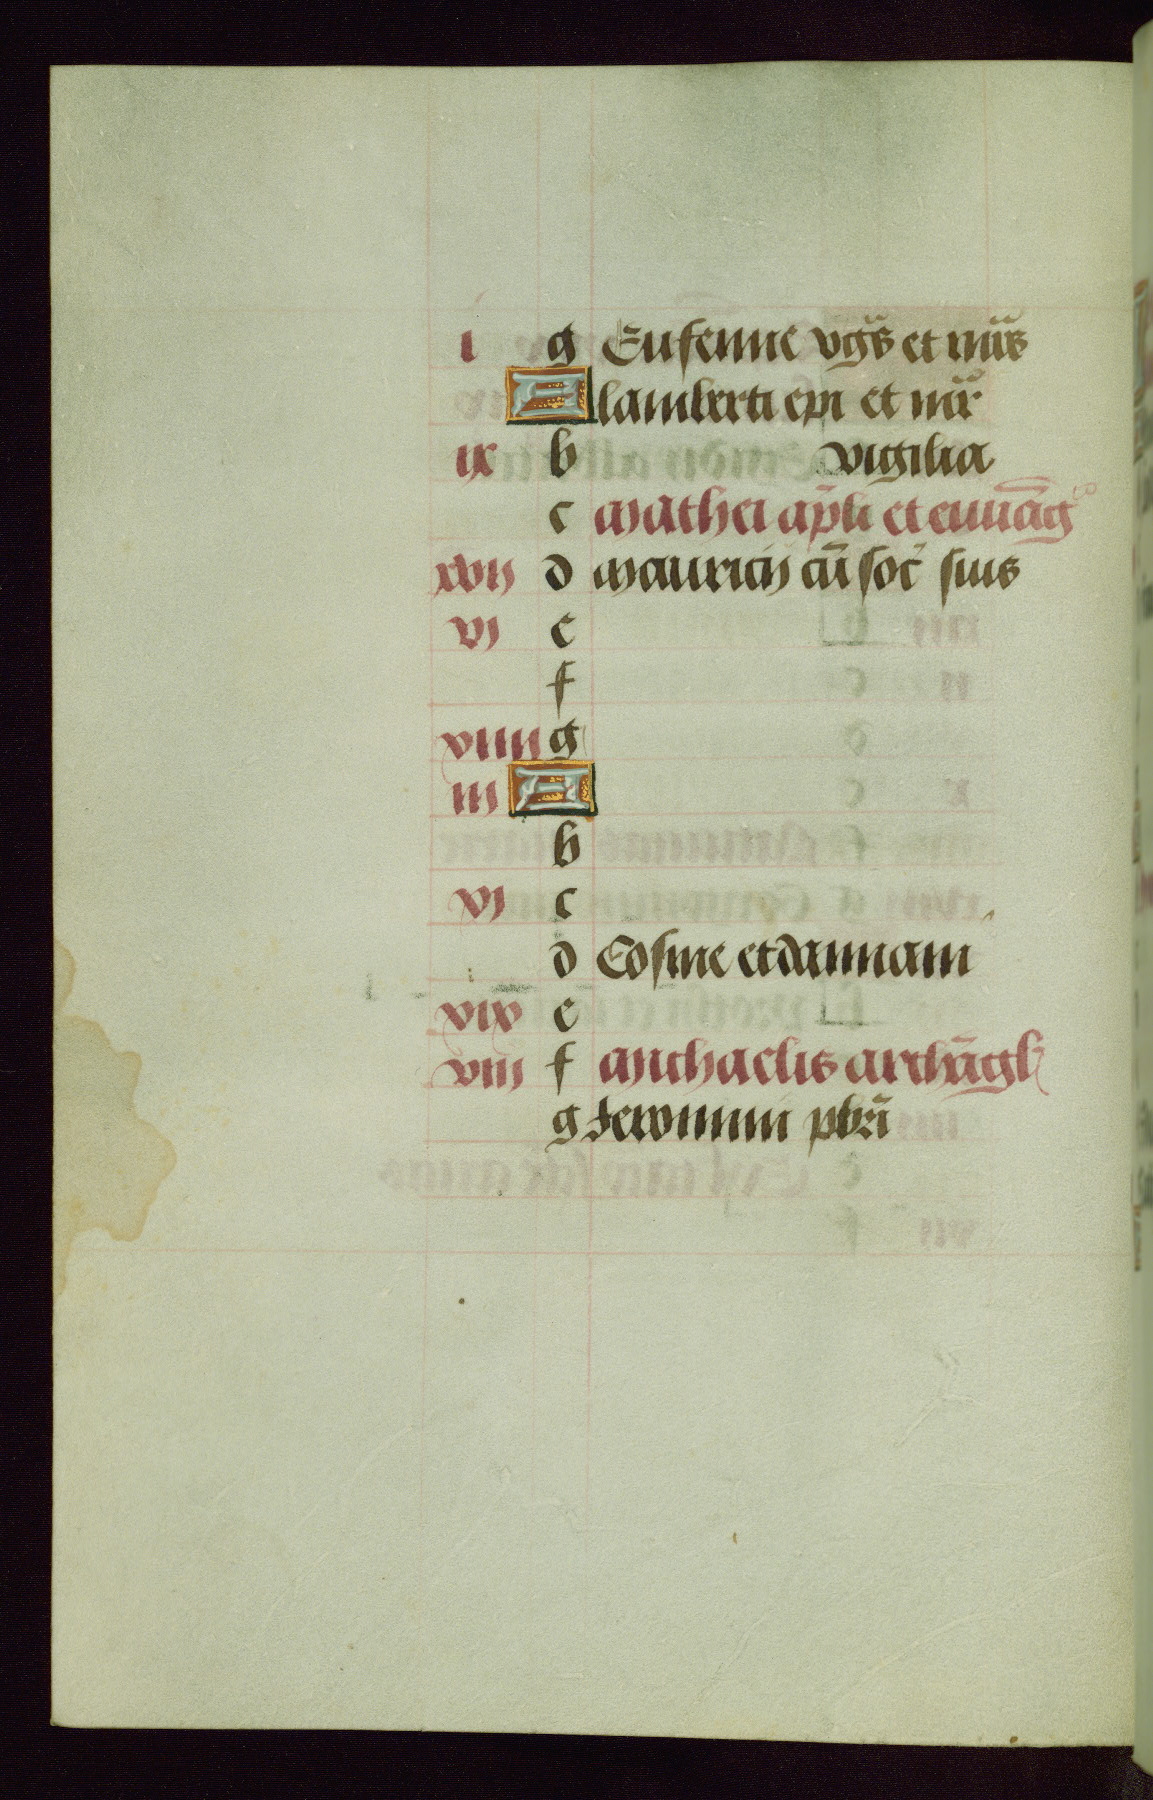 i g Eufemie vgīs et mr̄is
A lamberti epi et mr̄
ix b vigilia
c Mathei ap̄li et euuāg
xvij d Mauricij cū soc̄ suis
vj e
f
viiii g
iii A
b
vj c
d Cosme et damiani
xix e
viij f Michaelis archāgli
g Jeronimi pbr̄i